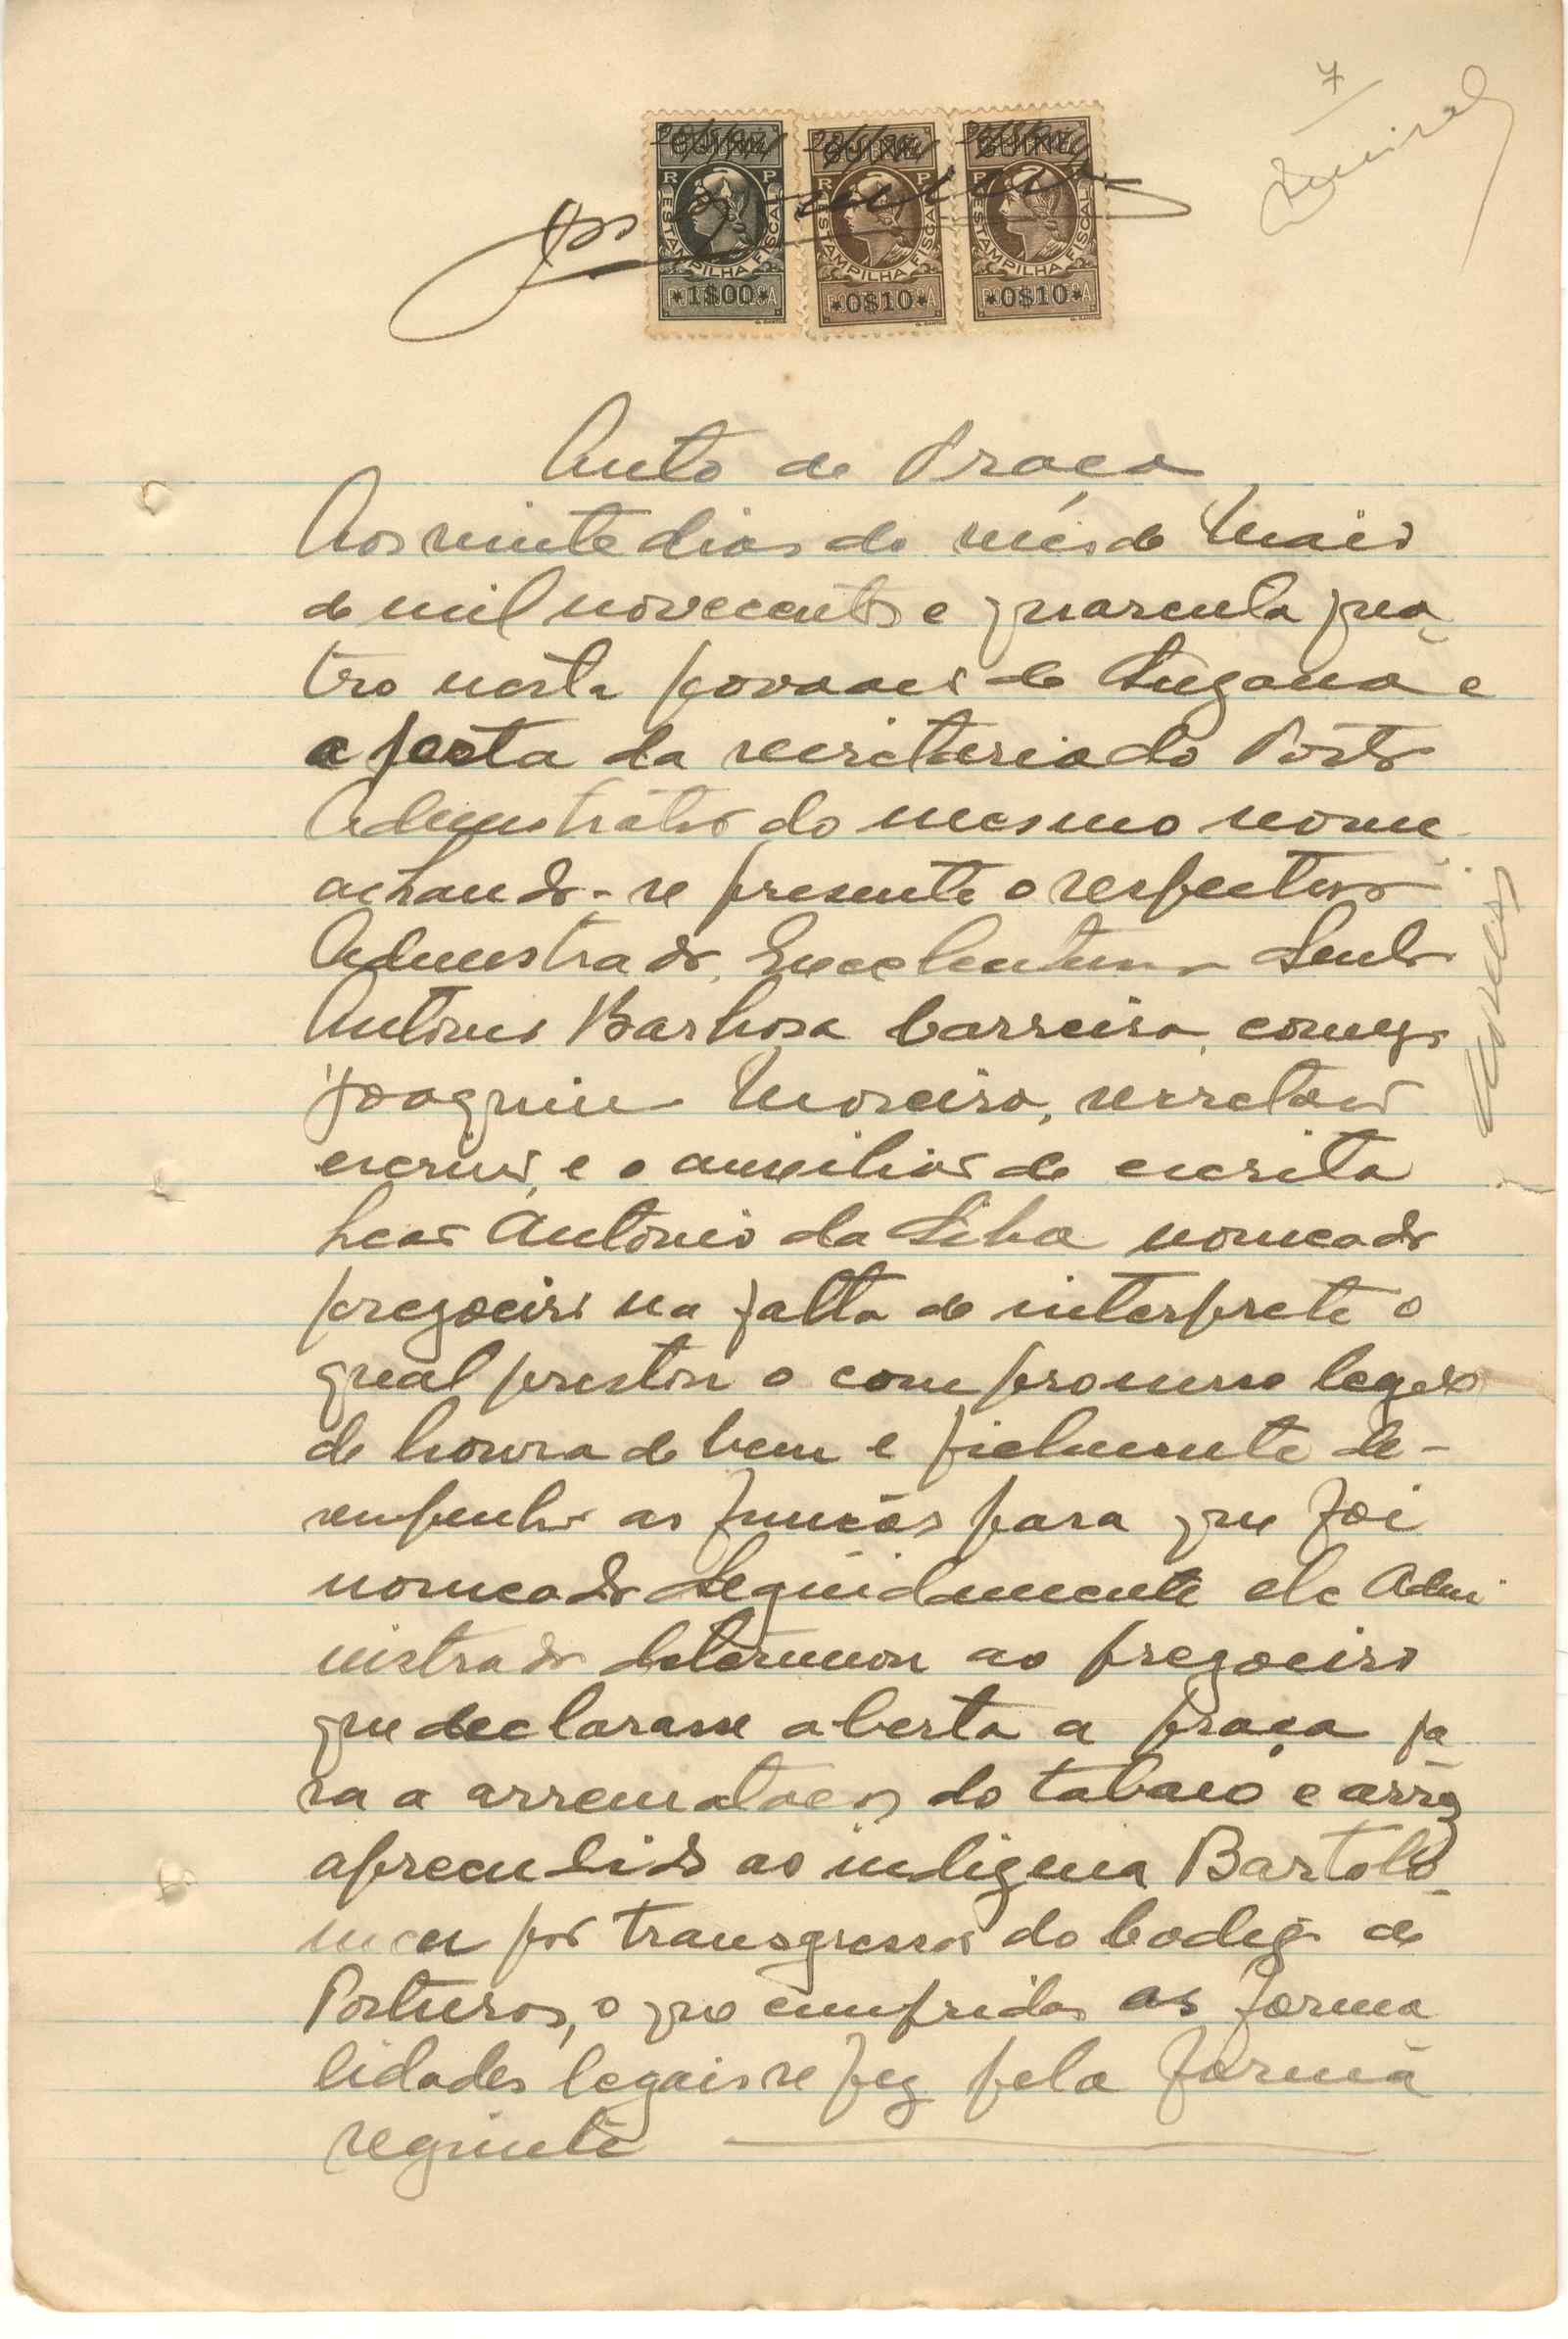 7
GUINÉ GUINÉ GUINÉ
R P R P R P
ESTAMPILHA FISCAL ESTAMPILHA FISCAL ESTAMPILHA FISCAL
*1$00* *0$10* *0$10*
Auto de Praça
Aos vinte dias do mês de Maio
de mil novecentos e quarenta qua-
tro nesta povoação de e
a porta da secretaria do Posto
Admnistrativo do mesmo nome
achando-se presente o respectivo
Admnistrador, Excelentissimo Senhor
António Barbosa Carreira, comigo
Joaquim Moreira, secretario
escrivão, e o auxiliar de escrita
António da Silva nomeado
pregoeiro na falta de interprete o
qual prestou o compromisso legal
de honra de bem e fielmente de-
sempenhar as funções para que foi
nomeado Seguidamente ele Admi-
nistrador determinou ao pregoeiro
que declarasse aberta a praça pa-
ra a arrematação do tabaco e arroz
apreendido ao indigena Bartolo-
meu por transgressão do Codigo de
Posturas, o que cumpridas as forma
lidades legais se fez pela forma
seguinte
Moreira